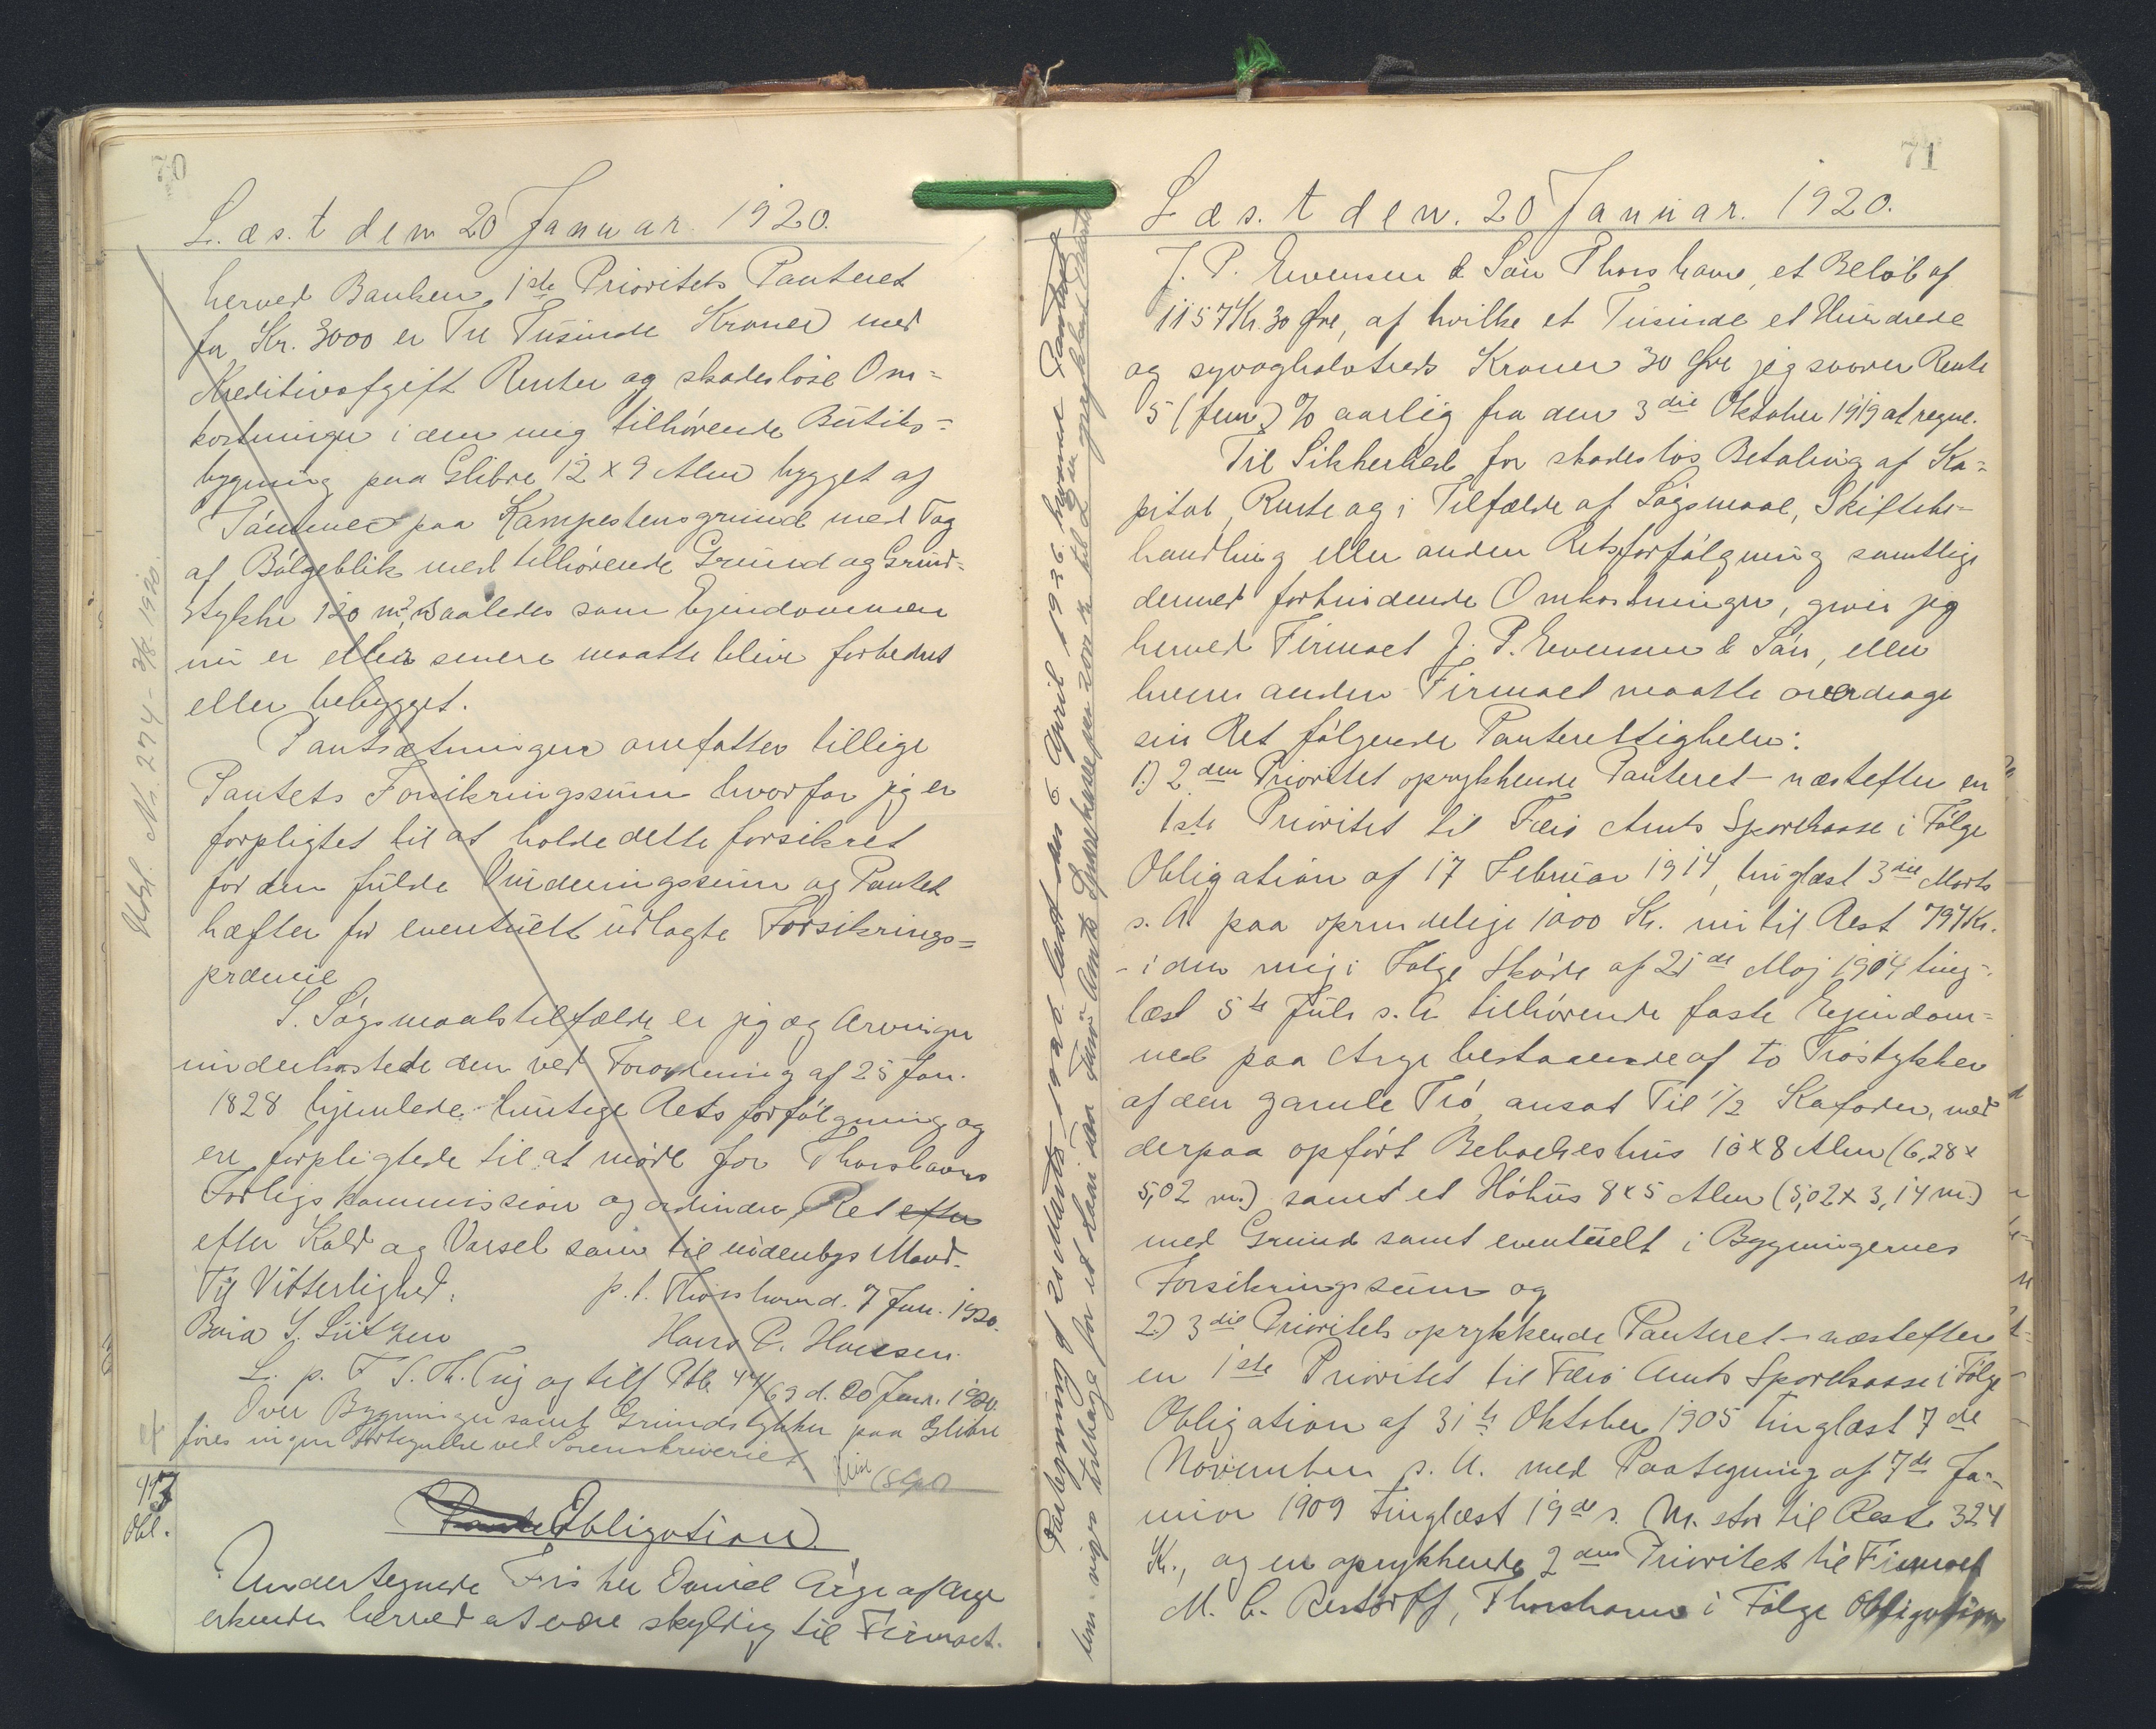 70
Læst den 20 Januar 1920.
herved Banken 1ste Prioritets Panteret
for Kr. 3000 er Tre Tusinde Kroner med
Kreditivafgift Renter og skadesløse Om=
kostninger i den mig tilhørende Butiks=
bygning paa Glibre 12 x 9 Alen bygget af
Tømmer paa Kampestensgrund med Tag
af Bølgeblik med tilhørende Grund og Grund-
stykke 120 m², saaledes som Ejendommen
nu er eller senere maatte blive forbedret
eller bebygget.
Pantsætningen omfatter tillige
Pantets Forsikringssum hvorfor jeg er
forpligtet til at holde dette forsikret
for den fulde Vurderingssum og Pantet
hæfter for eventuelt udlagte Forsikrings=
præmie
I Søgsmaalstilfælde er jeg og Arvinger
underkastede den ved Forordning af 25 Jan.
1828 hjemlede hurtige Retsforfølgning og
ere forpligtede til at møde for Thorshavns
Forligskommission og ordinære Ret efter
efter Kald og Varsel som til udenbys Mand.
Til Vitterlighed. p.t. Thorshavn d. 7 Jan. 1920.
Lützen Hans P. Hansen.
L. p. F. S. Th. Ting og tilf Ptb. 44/69 d. 20 Janr. 1920.
Over Bygninger samt Grundstykker paa Glibre
føres ingen Fortegnelse ved Sorenskriveriet.
Udsl. No. 274 - 3/8. 1920.
Obl.
Pante Obligation
Undertegnede Daniel Arge af Arge
erkender herved at være skyldig til Firmaet.
71
Læst den 20 Januar. 1920.
J. P. Evensen & Søn Thorshavn, et Beløb af
1157 Kr. 30 Øre, af hvilke et Tusinde et Hundrede
og syvoghalvtreds Kroner 30 Øre jeg svarer Rente
5 (fem) % aarlig fra den 3die Oktober 1919 at regne.
Til Sikkerhed for skadesløs Betaling af Ka=
pital, Rente og i Tilfælde af Søgsmaal, Skiftebe-
handling eller anden Retsforfølgning samtlige
dermed forbundende Omkostninger, giver jeg
herved Firmaet J. P. Evensen & Søn, eller
hvem anden Firmaet maatte overdrage
sin Ret følgende Panterettigheder:
1.) 2den Prioritet oprykkende Panteret - næstefter en
1ste Prioritet til Færø Amts Sparekasse i Følge
Obligation af 17 Februar 1914, tinglæst 3die Marts
s. A. paa oprindelige 1000 Kr. nu til Rest 797 Kr.
- i den mig i Følge Skøde af 21de Maj 1904 ting-
læst 5te Juli s. A. tilhørende faste Ejendom=
ved paa Arge bestaaende af to Trøstykker
af den gamle Trø, ansat til 1/2 Kofoder, med
derpaa opført Beboelseshus 10 x 8 Alen (6,28 x
5,02 m.) samt et Høhus 8 x 5 Alen (5,02 x 3,14 m.)
med Grund samt eventuelt i Bygningernes
Forsikringssum og
2.) 3die Prioritets oprykkende Panteret - næstefter
en 1ste Prioritet til Færø Amts Sparekasse i Følge
Obligation af 31te Oktober 1905 tinglæst 7de
November s. A. med Paategning af 7de Ja-
nuar 1909 tinglæst 19de s. M. stor til Rest 324
Kr., og en oprykkende 2den Prioritet til Firmaet
M. C. Restorff, Thorshavn i Følge Obligation
Paategning af 20 Marts læst den 6 April 1926. hvorved Panthaveren
viger tilbage for et Laan Færø Amts Sparekasse paa 2000 Kr. til